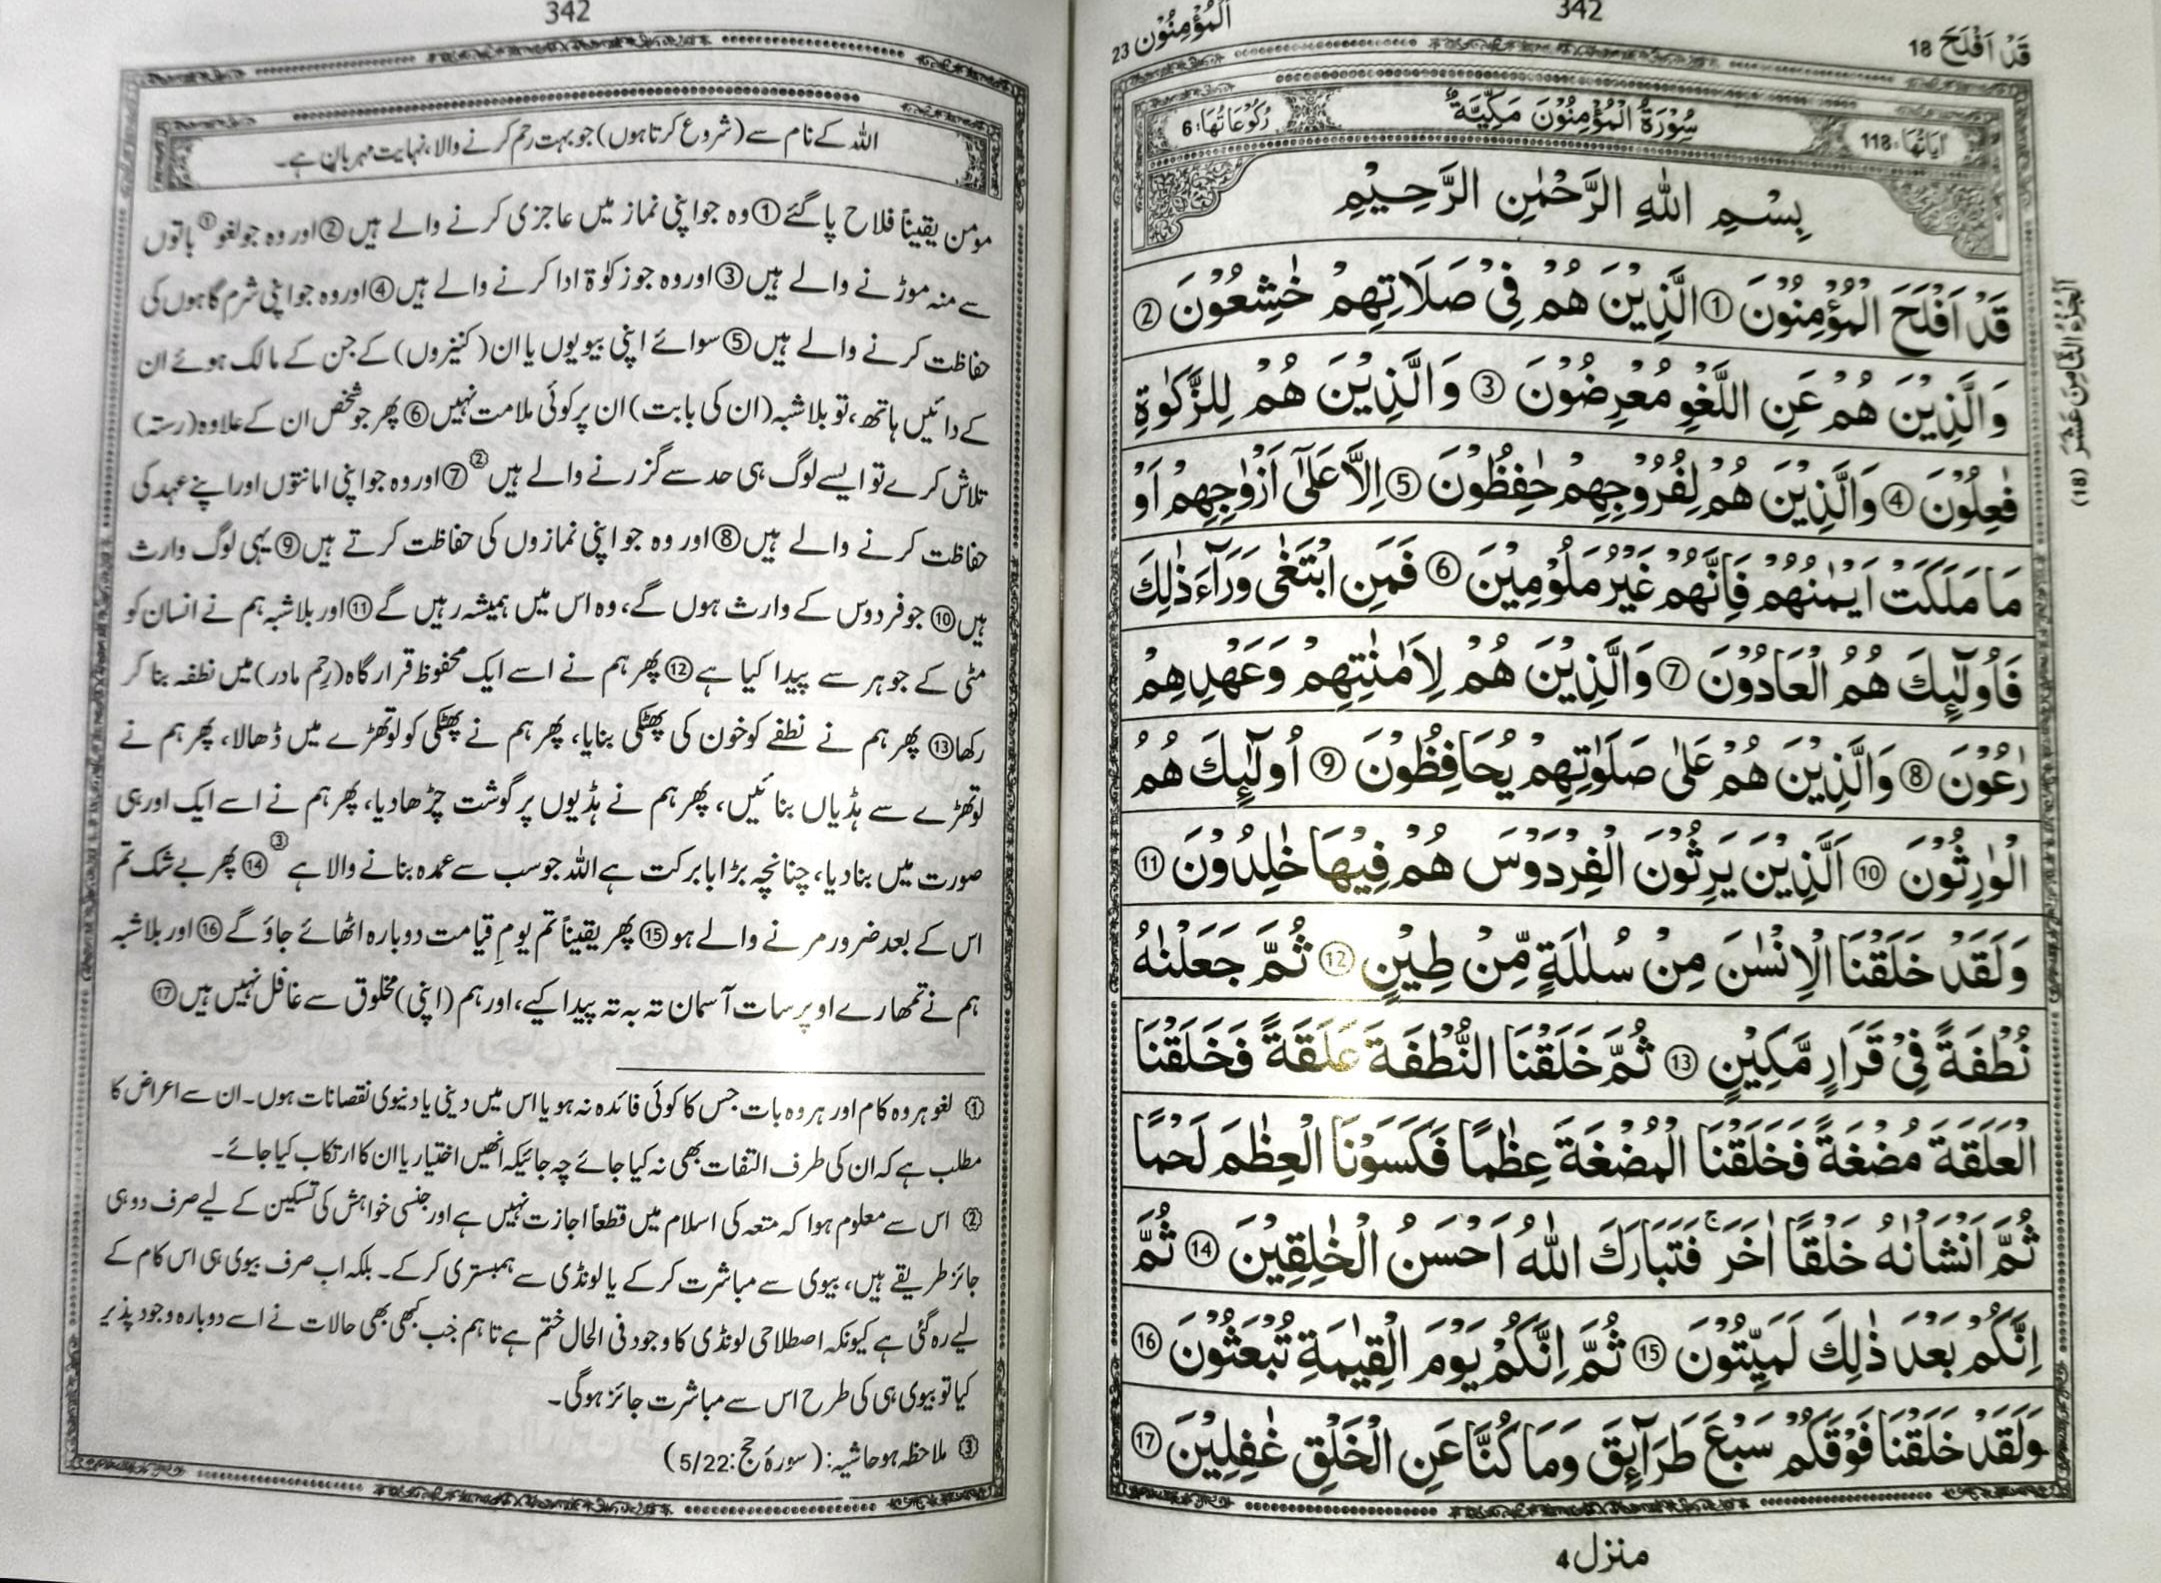 342
قَدْ اَفْلَحَ 18
اَلْمُؤْمِنُوْن 23
اٰيَاتُهَا: 118
سُوْرَةُ الْمُؤْمِنُوْنَ مَكِّيَّةٌ
رُكُوْعَاتُهَا: 6
بِسْمِ اللّٰهِ الرَّحْمٰنِ الرَّحِيْمِ
قَدْ اَفْلَحَ الْمُؤْمِنُوْنَ ① الَّذِيْنَ هُمْ فِيْ صَلَاتِهِمْ خٰشِعُوْنَ ②
وَالَّذِيْنَ هُمْ عَنِ اللَّغْوِ مُعْرِضُوْنَ ③ وَالَّذِيْنَ هُمْ لِلزَّكٰوةِ
فٰعِلُوْنَ ④ وَالَّذِيْنَ هُمْ لِفُرُوْجِهِمْ حٰفِظُوْنَ ⑤ اِلَّا عَلٰٓى اَزْوٰجِهِمْ اَوْ
مَا مَلَكَتْ اَيْمٰنُهُمْ فَاِنَّهُمْ غَيْرُ مَلُوْمِيْنَ ⑥ فَمَنِ ابْتَغٰى وَرَآءَ ذٰلِكَ
فَاُولٰٓئِكَ هُمُ الْعَادُوْنَ ⑦ وَالَّذِيْنَ هُمْ لِاَمٰنٰتِهِمْ وَعَهْدِهِمْ
رٰعُوْنَ ⑧ وَالَّذِيْنَ هُمْ عَلٰى صَلَوٰتِهِمْ يُحَافِظُوْنَ ⑨ اُولٰٓئِكَ هُمُ
الْوٰرِثُوْنَ ⑩ اَلَّذِيْنَ يَرِثُوْنَ الْفِرْدَوْسَ هُمْ فِيْهَا خٰلِدُوْنَ ⑪
وَلَقَدْ خَلَقْنَا الْاِنْسٰنَ مِنْ سُلٰلَةٍ مِّنْ طِيْنٍ ⑫ ثُمَّ جَعَلْنٰهُ
نُطْفَةً فِيْ قَرَارٍ مَّكِيْنٍ ⑬ ثُمَّ خَلَقْنَا النُّطْفَةَ عَلَقَةً فَخَلَقْنَا
الْعَلَقَةَ مُضْغَةً فَخَلَقْنَا الْمُضْغَةَ عِظٰمًا فَكَسَوْنَا الْعِظٰمَ لَحْمًا
ثُمَّ اَنْشَاْنٰهُ خَلْقًا اٰخَرَ ۚ فَتَبَارَكَ اللّٰهُ اَحْسَنُ الْخٰلِقِيْنَ ⑭ ثُمَّ
اِنَّكُمْ بَعْدَ ذٰلِكَ لَمَيِّتُوْنَ ⑮ ثُمَّ اِنَّكُمْ يَوْمَ الْقِيٰمَةِ تُبْعَثُوْنَ ⑯
وَلَقَدْ خَلَقْنَا فَوْقَكُمْ سَبْعَ طَرَآئِقَ وَمَا كُنَّا عَنِ الْخَلْقِ غٰفِلِيْنَ ⑰
اَلْجُزْءُ الثَّامِنَ عَشَرَ (18)
منزل 4
342
اللہ کے نام سے (شروع کرتا ہوں) جو بہت رحم کرنے والا، نہایت مہربان ہے۔
مومن یقیناً فلاح پا گئے① وہ جو اپنی نماز میں عاجزی کرنے والے ہیں② اور وہ جو لغو① باتوں
سے منہ موڑنے والے ہیں③ اور وہ جو زکوٰۃ ادا کرنے والے ہیں④ اور وہ جو اپنی شرم گاہوں کی
حفاظت کرنے والے ہیں⑤ سوائے اپنی بیویوں یا ان (کنیزوں) کے جن کے مالک ہوئے ان
کے دائیں ہاتھ، تو بلاشبہ (ان کی بابت) ان پر کوئی ملامت نہیں⑥ پھر جو شخص ان کے علاوہ (رستہ)
تلاش کرے تو ایسے لوگ ہی حد سے گزرنے والے ہیں② ⑦ اور وہ جو اپنی امانتوں اور اپنے عہد کی
حفاظت کرنے والے ہیں⑧ اور وہ جو اپنی نمازوں کی حفاظت کرتے ہیں⑨ یہی لوگ وارث
ہیں⑩ جو فردوس کے وارث ہوں گے، وہ اس میں ہمیشہ رہیں گے⑪ اور بلاشبہ ہم نے انسان کو
مٹی کے جوہر سے پیدا کیا ہے⑫ پھر ہم نے اسے ایک محفوظ قرار گاہ (رحِم مادر) میں نطفہ بنا کر
رکھا⑬ پھر ہم نے نطفے کو خون کی پھٹکی بنایا، پھر ہم نے پھٹکی کو لوتھڑے میں ڈھالا، پھر ہم نے
لوتھڑے سے ہڈیاں بنائیں، پھر ہم نے ہڈیوں پر گوشت چڑھا دیا، پھر ہم نے اسے ایک اور ہی
صورت میں بنا دیا، چنانچہ بڑا بابرکت ہے اللہ جو سب سے عمدہ بنانے والا ہے③ ⑭ پھر بے شک تم
اس کے بعد ضرور مرنے والے ہو⑮ پھر یقیناً تم یومِ قیامت دوبارہ اٹھائے جاؤ گے⑯ اور بلاشبہ
ہم نے تمھارے اوپر سات آسمان تہ بہ تہ پیدا کیے، اور ہم (اپنی) مخلوق سے غافل نہیں ہیں⑰
① لغو ہر وہ کام اور ہر وہ بات جس کا کوئی فائدہ نہ ہو یا اس میں دینی یا دنیوی نقصانات ہوں۔ ان سے اعراض کا
مطلب ہے کہ ان کی طرف التفات بھی نہ کیا جائے چہ جائیکہ انھیں اختیار یا ان کا ارتکاب کیا جائے۔
② اس سے معلوم ہوا کہ متعہ کی اسلام میں قطعاً اجازت نہیں ہے اور جنسی خواہش کی تسکین کے لیے صرف دو ہی
جائز طریقے ہیں، بیوی سے مباشرت کر کے یا لونڈی سے ہمبستری کر کے۔ بلکہ اب صرف بیوی ہی اس کام کے
لیے رہ گئی ہے کیونکہ اصطلاحی لونڈی کا وجود فی الحال ختم ہے تاہم جب کبھی بھی حالات نے اسے دوبارہ وجود پذیر
کیا تو بیوی ہی کی طرح اس سے مباشرت جائز ہوگی۔
③ ملاحظہ ہو حاشیہ: (سورۂ حج: 5/22)